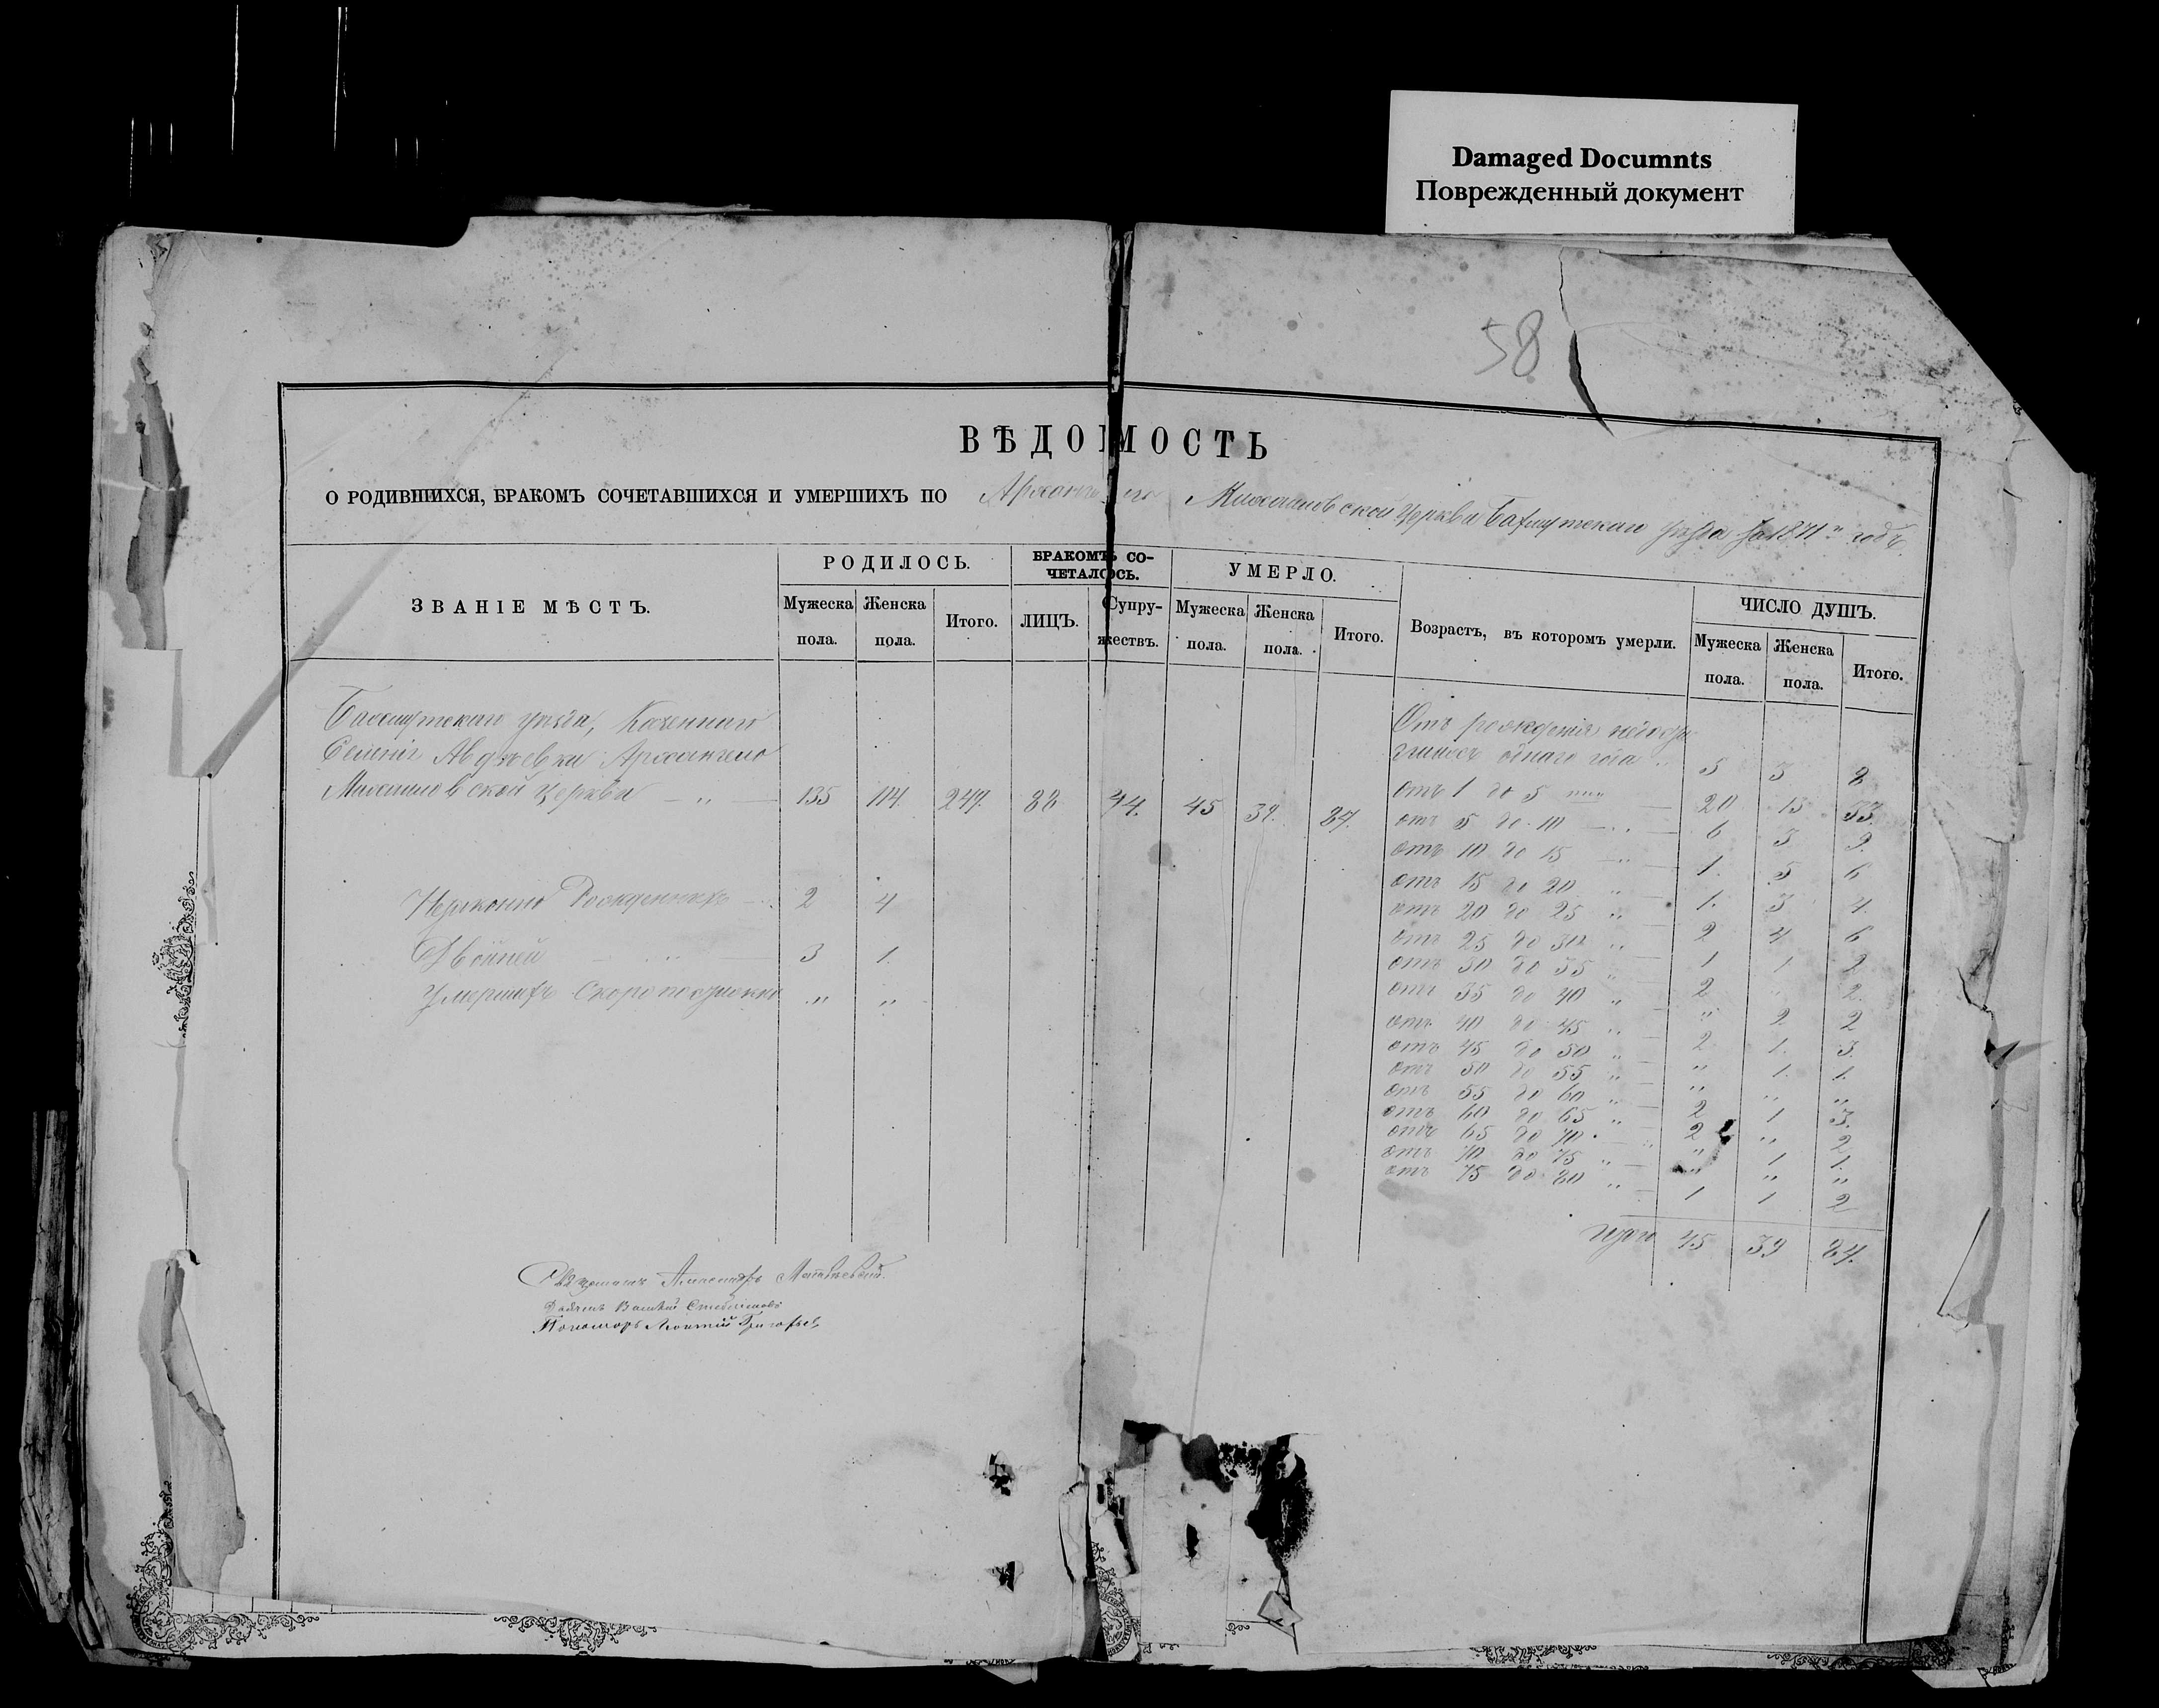 Damaged Documnts
Поврежденный документ
58
ВѢДОМОСТЬ
О РОДИВШИХСЯ, БРАКОМЪ СОЧЕТАВШИХСЯ И УМЕРШИХЪ ПО Архангело Михаиловской Церкви Бахмутскаго уѣзда за 1871й годъ.
ЗВАНІЕ МѢСТЪ.
РОДИЛОСЬ.
Мужеска пола.
Женска пола.
Итого.
БРАКОМЪ СО-
ЧЕТАЛОСЬ.
ЛИЦЪ.
Супру-
жествъ.
УМЕРЛО.
Мужеска пола.
Женска пола.
Итого.
Возрастъ, въ которомъ умерли.
ЧИСЛО ДУШЪ.
Мужеска пола.
Женска пола.
Итого.
Бахмутскаго уѣзда, Казеннаго
Селенія Авдѣевки Архангело
Михаиловской Церкви — „ — 135 114. 249. 88 44. 45 39. 84.
2 4
Двойней — „ — 3 1.
Умершихъ Скоропостижно „ „
Отъ рожденія
одного года 5 3 8
отъ 1 до 5 20 13 33.
отъ 5 до 10 6 3 9.
отъ 10 до 15 „ 1. 5 6
отъ 15 до 20 „ 1. 3 4.
отъ 20 до 25 „ 2 4 6
отъ 25 до 30 „ 1 1 2
отъ 30 до 35 „ 2 „ 2.
отъ 35 до 40 „ „ 2 2
отъ 40 до 45 „ 2 1. 3.
отъ 45 до 50 „ „ 1. 1.
отъ 50 до 55 „ „ „ „
отъ 55 до 60 „ 2 1 3.
отъ 60 до 65 „ 2 „ 2
отъ 65 до 70 „ „ 1 1.
отъ 70 до 75 „ „ „ „
отъ 75 до 80 „ 1 1 2
Итого 45 39 84.
Священникъ
Дьячекъ Василій
Пономарь Григорьевъ